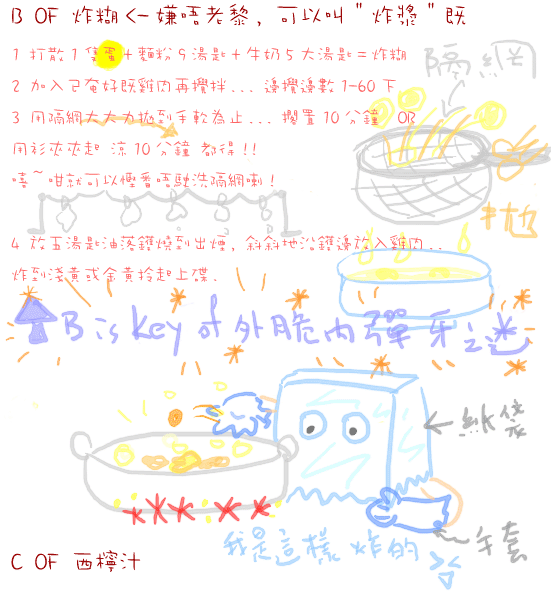 B OF 炸糊 <- 嫌唔老黎, 可以叫 "炸漿" 既
1 打散 1 隻蛋 + 麵粉 9 湯匙 + 牛奶 5 大湯匙 = 炸糊
2 加入已奄好既雞肉再攪拌... 邊攪邊數 1-60 下
隔網
3 用隔網大大力拋到手軟為止... 擱置 10 分鐘 OR
用衫夾夾起 涼 10 分鐘 都得!!
嘻~咁就可以慳番唔駛洗隔網喇!
拋
4 放五湯匙油落鑊燒到出煙, 斜斜地沿鑊邊放入雞肉..
炸到淺黃或金黃拎起上碟.
B is Key of 外脆內彈牙之迷
紙袋
手套
我是這樣炸的
C OF 西檸汁